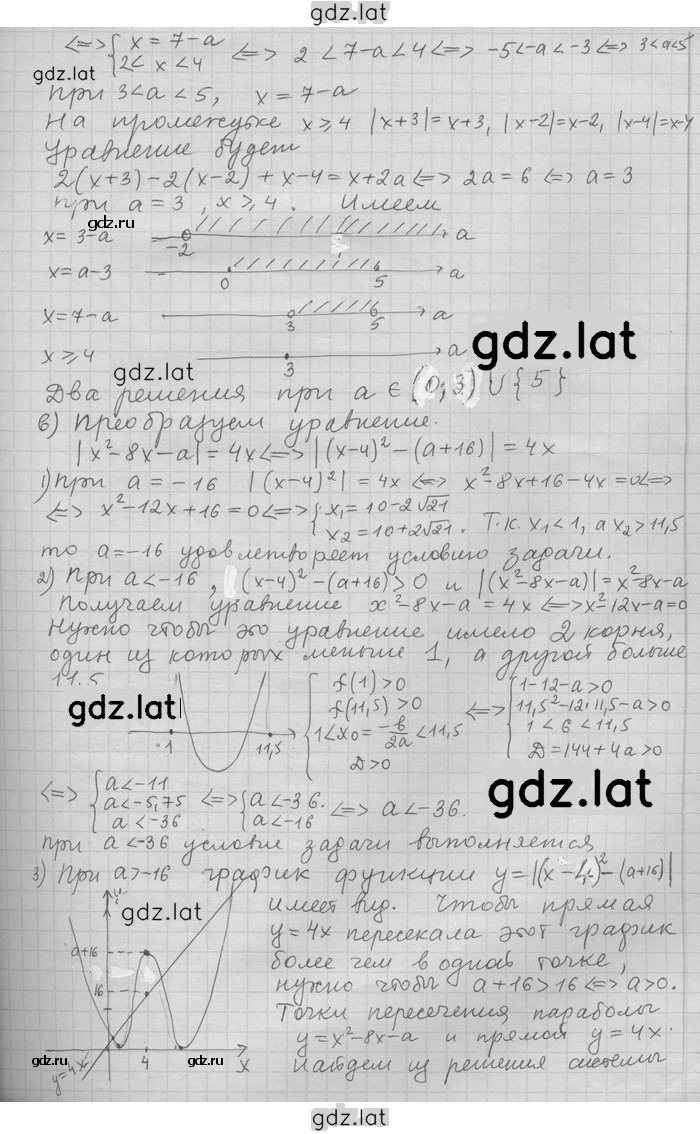 gdz.lat
⟺ { x = 7-a
2< x <4 ⟺ 2 < 7-a < 4 ⟺ -5<-a<-3 ⟺ 3<a<5
gdz.lat
при 3<a<5, x = 7-a
На промежутке x ⩾ 4 |x+3| = x+3, |x-2| = x-2, |x-4| = x-4
Уравнение будет
2(x+3) - 2(x-2) + x-4 = x+2a ⟺ 2a = 6 ⟺ a = 3
при a = 3, x ⩾ 4. Имеем
gdz.lat
x = 3-a -2 a
x = a-3 0 5
x = 7-a 3 5 a
gdz.lat
x ⩾ 4 3 a
gdz.lat
Два решения при a ∈ (0; 3) ∪ {5}
в) Преобразуем уравнение.
|x²-8x-a| = 4x ⟺ |(x-4)² - (a+16)| = 4x
1) При a = -16 |(x-4)²| = 4x ⟺ x²-8x+16-4x = 0 ⟺
⟺ x²-12x+16 = 0 ⟺ { x₁ = 10-2√21
x₂ = 10+2√21 . Т.к. x₁ < 1, а x₂ > 11,5
то a = -16 удовлетворяет условию задачи.
2) При a < -16, (x-4)² - (a+16) > 0 и |(x²-8x-a)| = x²-8x-a
Получаем уравнение x²-8x-a = 4x ⟺ x²-12x-a=0
Нужно чтобы это уравнение имело 2 корня,
один из которых меньше 1, а другой больше
11.5
gdz.lat
1 11,5
{ f(1) > 0
f(11,5) > 0
1 < x₀ = -b/2a < 11,5
D > 0
⟺ { 1-12-a > 0
11,5²-12·11,5-a > 0
1 < 6 < 11,5
D = 144+4a > 0
gdz.lat
⟺ { a < -11
a < -5,75
a < -36 ⟺ { a < -36.
a < -16 ⟺ a < -36.
при a < -36 условие задачи выполняется
3) При a > -16 график функции y = |(x-4)² - (a+16)|
gdz.lat
имеет вид. Чтобы прямая
y = 4x пересекала этот график
более чем в одной точке,
нужно чтобы a+16 > 16 ⟺ a > 0.
Точки пересечения параболы
y = x²-8x-a и прямой y = 4x
найдем из решения системы
a+16
16
gdz.lat
gdz.lat
4
x
y = 4x
gdz.lat
gdz.lat